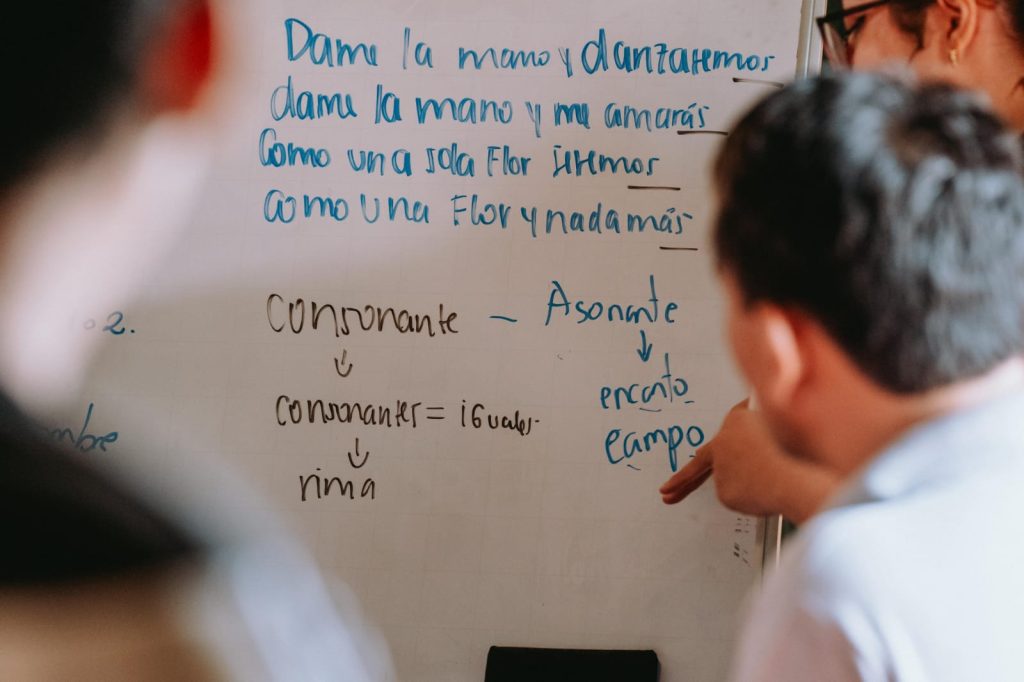 Dame la mano y danzaremos
dame la mano y me amarás
Como una sola Flor seremos
Como una Flor y nada más
2.
Consonante – Asonante
↓ ↓
consonantes = iguales. encanto
↓ campo
rima
mbre